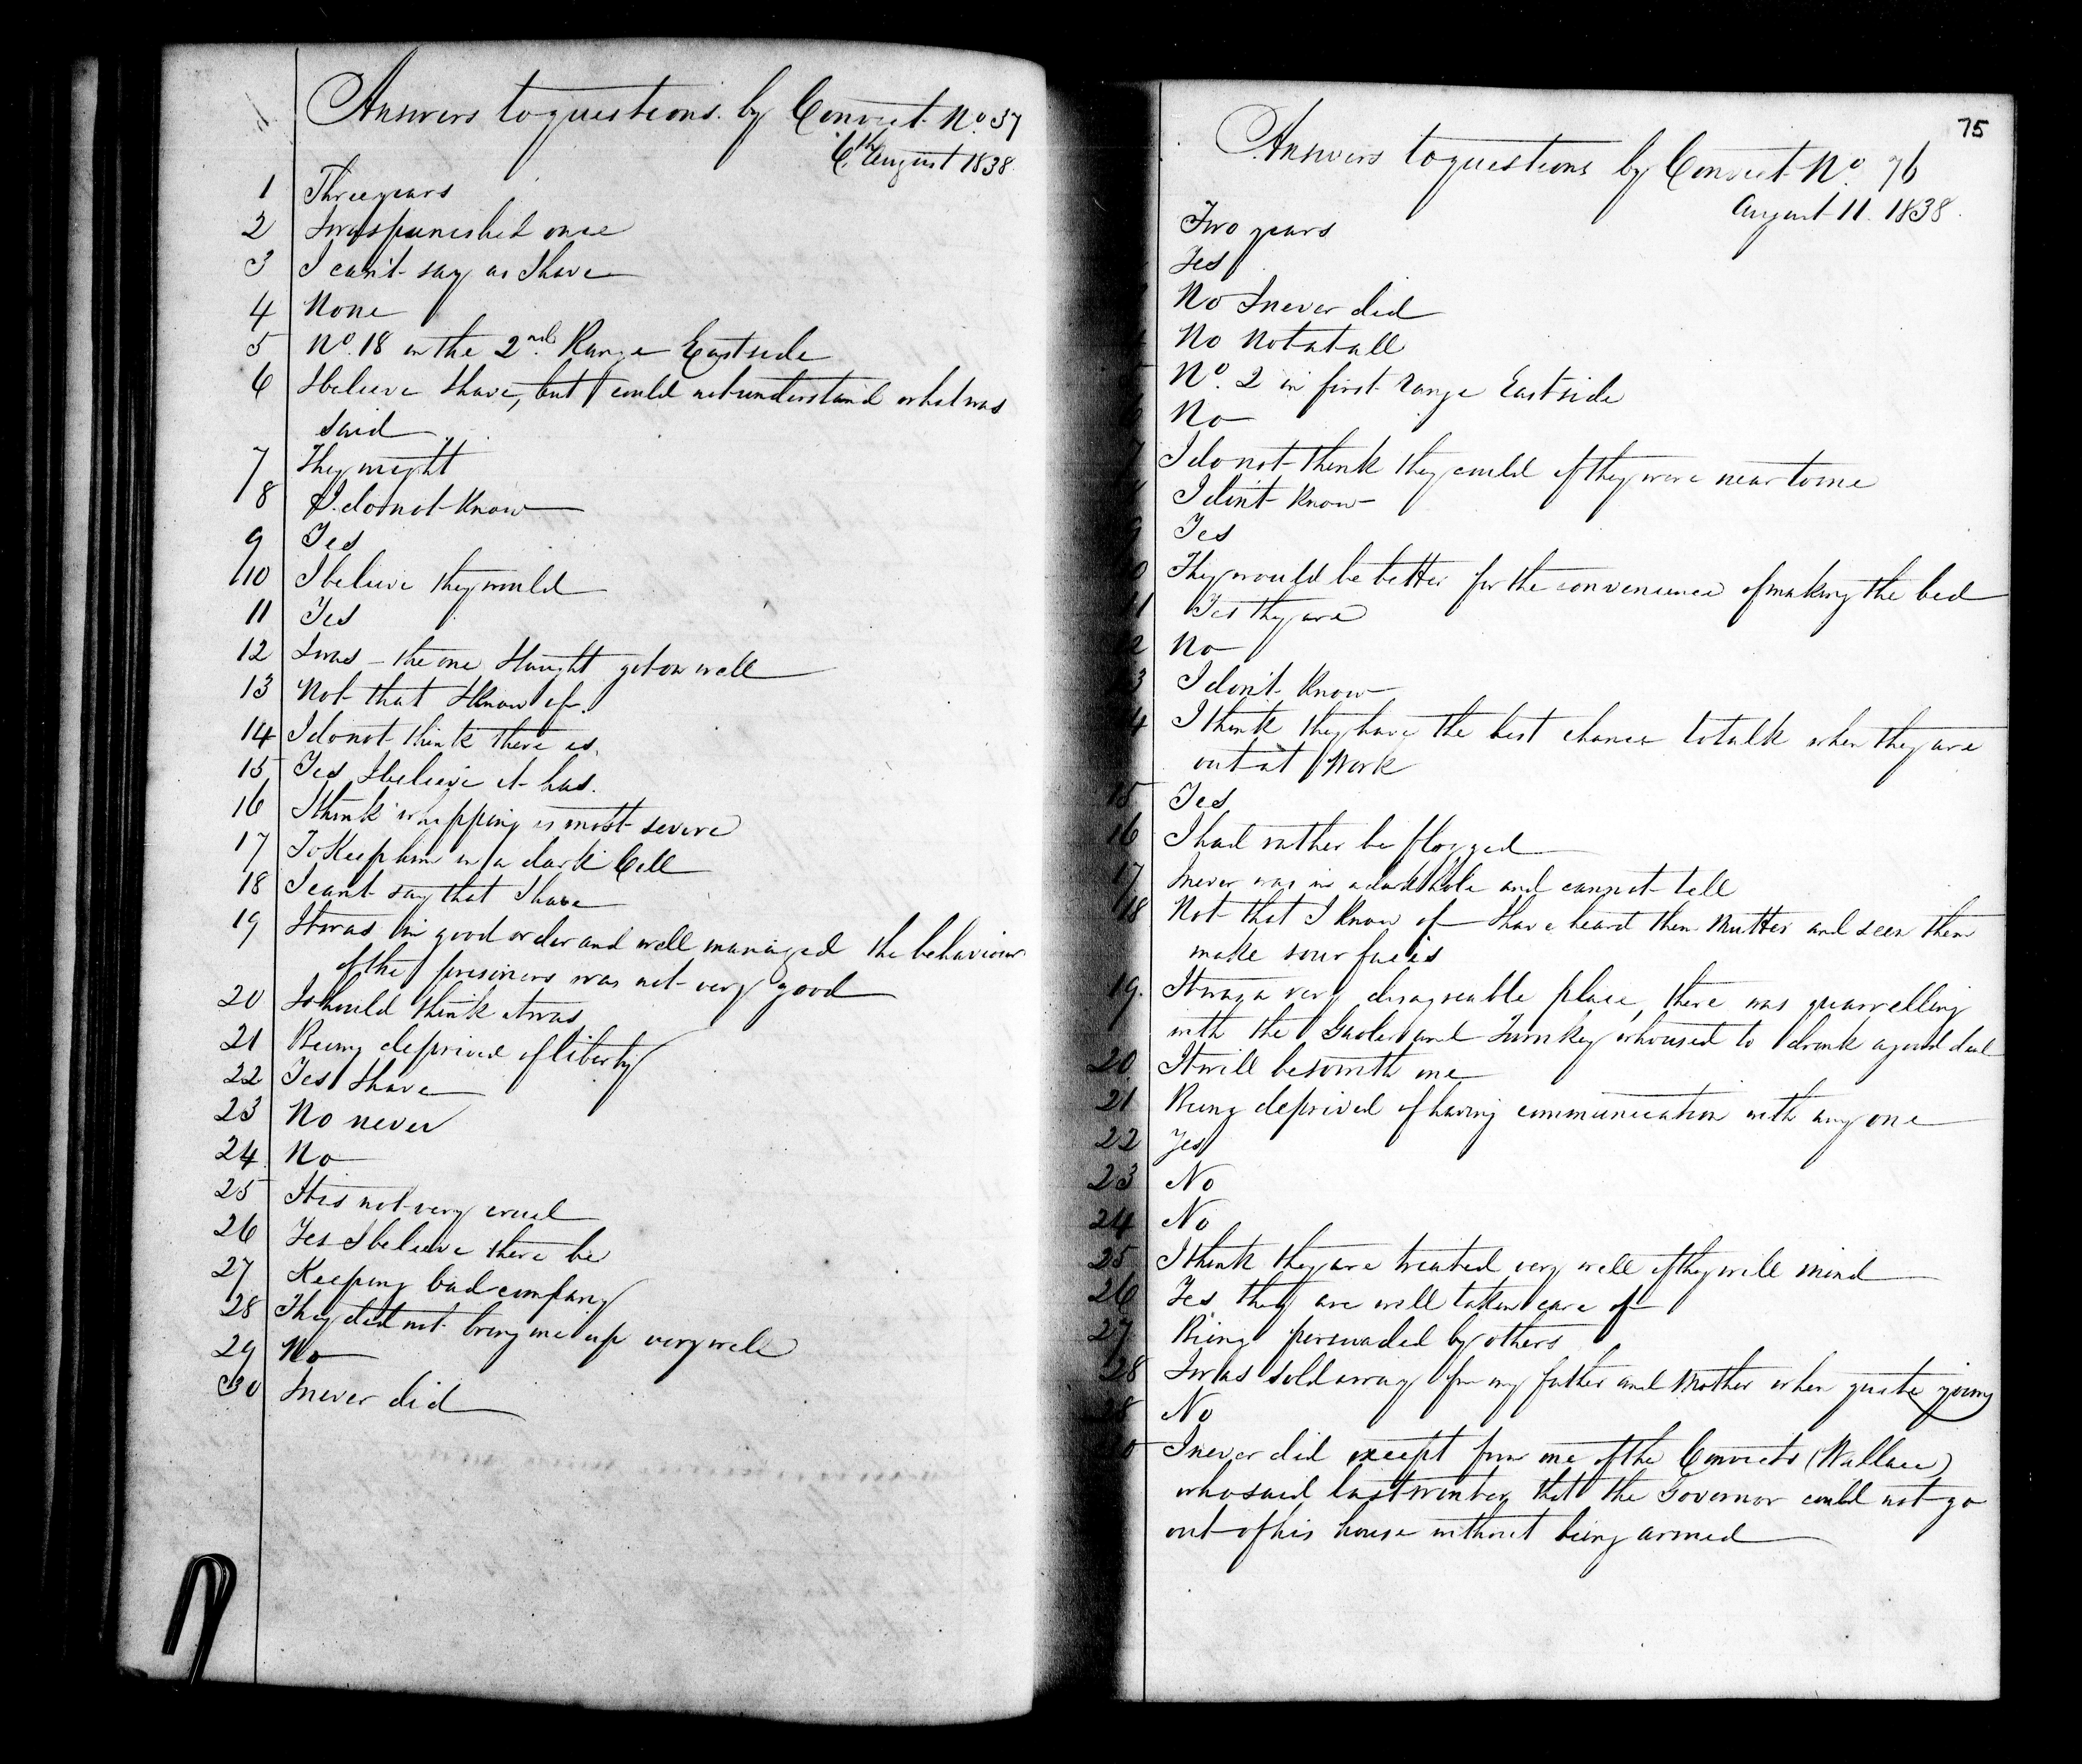 Answers to questions by Convict No. 37
6th August 1838
1 Three years
2 I was punished once
3 I can't say as I have
4 None
5 No. 18 in the 2nd Range East side
6 I believe I have, but I could not understand what was
said
7 They might
8 I do not know
9 Yes
10 I believe they would
11 Yes
12 I was - the one I taught got on well
13 Not that I know of
14 I do not think there is
15 Yes I believe it has
16 I think whipping is most severe
17 To Keep him in a dark Cell
18 I can't say that I have
19 It was in good order and well managed the behaviour
of the prisoners was not very good
20 I should think it was
21 Being deprived of liberty
22 Yes I have
23 No never
24 No
25 It is not very cruel
26 Yes I believe there be
27 Keeping bad company
28 They did not bring me up very well
29 No
30 I never did
75
Answers to questions by Convict No. 76
August 11. 1838.
Two years
Yes
No I never did
No Not at all
No. 2 in first range East side
No
7 I do not think they could if they were near to me
I don't know
9 Yes
They would be better for the convenience of making the bed
11 Yes they are
2 No
3 I don't know
4 I think they have the best chance to talk when they are
out at Work
15 Yes
16 I had rather be flogged
17 I never was in a dark hole and cannot tell
18 Not that I know of I have heard them Mutter and seen them
make sour faces
19. It was a very disagreeable place, there was quarrelling
with the Gaoler and Turnkey who used to drink a good deal
20 It will be so with me
21 Being deprived of having communication with any one
22 Yes
23 No
24 No
25 I think they are treated very well if they will mind
26 Yes they are well taken care of
27 Being persuaded by others
28 I was sold away from my father and Mother when quite young
28 No
0 I never did except from one of the Convicts (Wallace)
who said last winter that the Governor could not go
out of his house without being armed